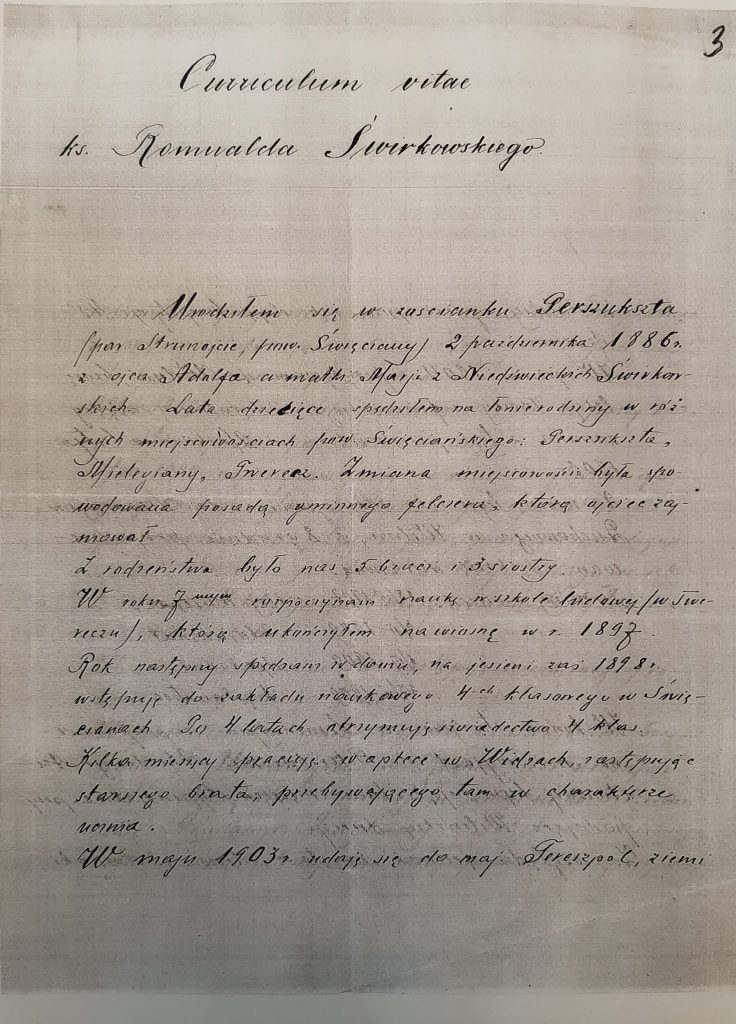 3
Curriculum vitae
ks. Romualda Świrkowskiego.
Urodziłem się w zaścianku Perszukszta
(par Strunojcie, pow. Święciany) 2 października 1886 r.
z ojca Adolfa a matki Marji z Niedźwieckich Świrkow-
skich. Lata dziecięce spędziłem na łonie rodziny w róż-
nych miejscowościach pow. Święciańskiego: Perszukszta,
Mielegiany, Twerecz. Zmiana miejscowości była spo-
wodowana posadą gminnego felczera, którą ojciec zaj-
mował.
Z rodzeństwa było nas 5 braci i 3 siostry.
W roku 7mym rozpoczynam naukę w szkole ludowej (w Twe-
reczu), którą ukończyłem na wiosnę w r. 1897.
Rok następny spędzam w domu, na jesieni zaś 1898 r.
wstępuję do zakładu naukowego 4ch klasowego w Świę-
cianach Po 4 latach otrzymuję świadectwo 4 klas.
Kilka miesięcy pracuję w aptece w Widzach, zastępując
starszego brata, przebywającego tam w charakterze
ucznia.
W maju 1903 r. udaję się do maj. Tereszpol, ziemi